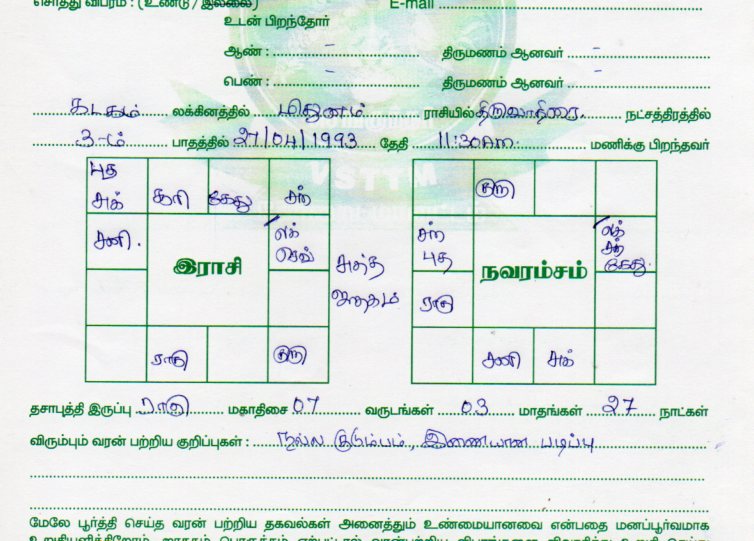 சொத்து விபரம் : (உண்டு / இல்லை) E-mail
உடன் பிறந்தோர்
ஆண் : - திருமணம் ஆனவர் -
பெண் : - திருமணம் ஆனவர் -
கடகம் லக்கினத்தில் மிதுனம் ராசியில் திருவாதிரை. நட்சத்திரத்தில்
3-ம் பாதத்தில் 27/04/1993 தேதி 11:30Am. மணிக்கு பிறந்தவர்
VSTTM
புத
சுக் சூரி கேது சந்
சனி .
லக்
செவ்
இராசி
ராகு குரு
சுத்த
ஜாதகம்
குரு
சந்
புத
லக்
சந்
கேது.
நவரம்சம்
ராகு
சனி சுக்
தசாபுத்தி இருப்பு ராகு மகாதிசை 07 வருடங்கள் 03 மாதங்கள் 27 நாட்கள்
விரும்பும் வரன் பற்றிய குறிப்புகள் : நல்ல குடும்பம், இணையான படிப்பு
மேலே பூர்த்தி செய்த வரன் பற்றிய தகவல்கள் அனைத்தும் உண்மையானவை என்பதை மனப்பூர்வமாக